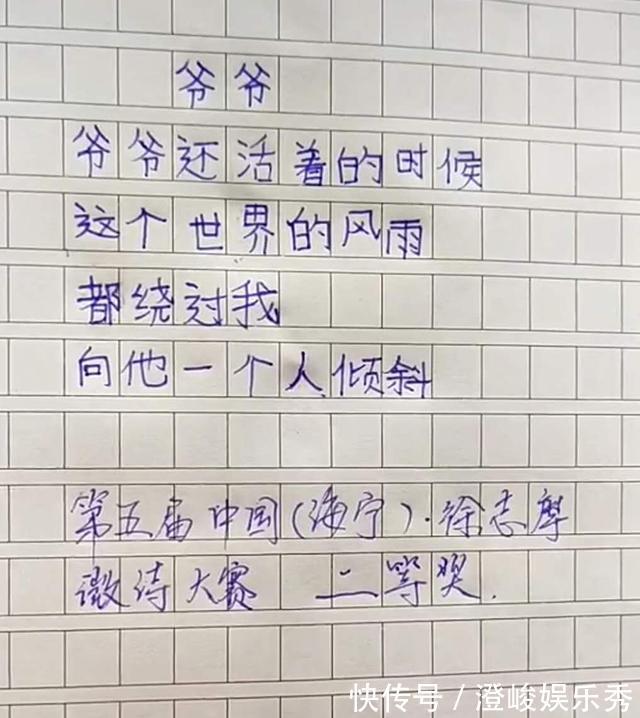 爷爷
爷爷还活着的时候
这个世界的风雨
都绕过我
向他一个人倾斜
第五届中国(海宁)·徐志摩
微诗大赛 二等奖.
快传号/澄峻娱乐秀